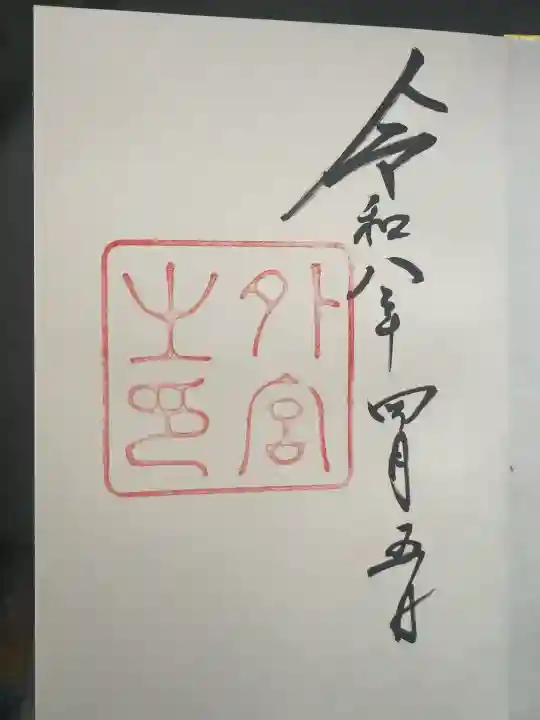 令和八年四月五日
外宮
之印